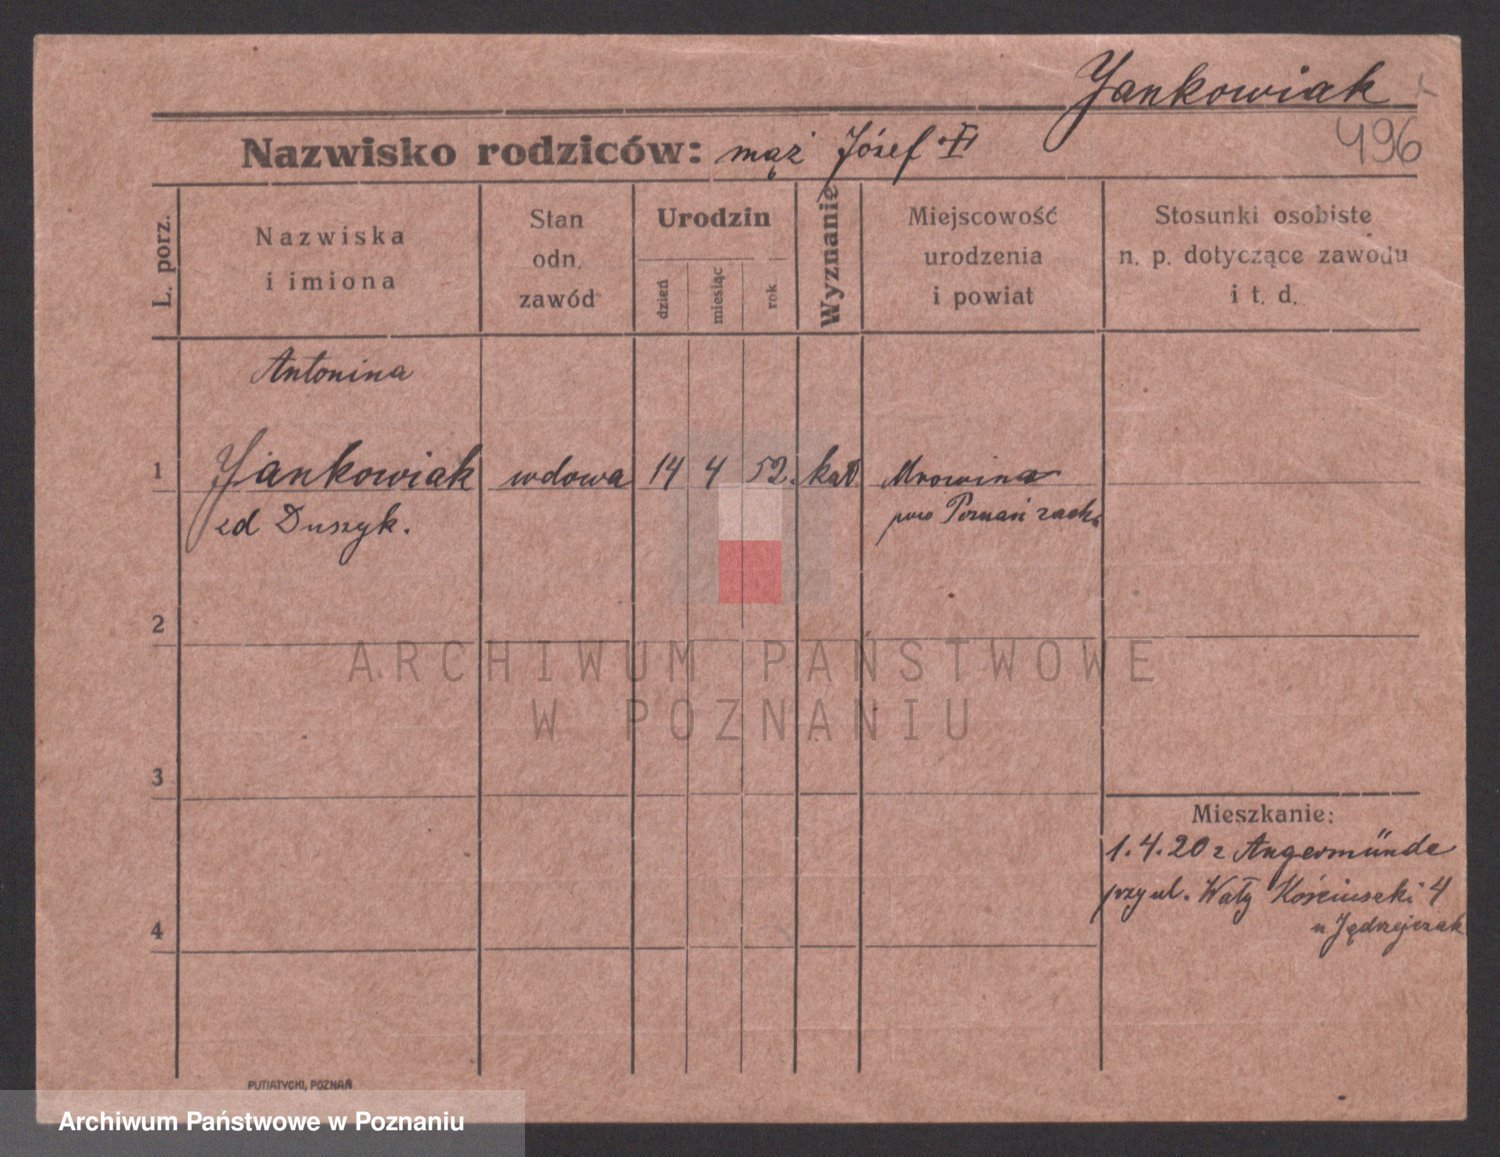 Jankowiak
496
Nazwisko rodziców: mąż Józef
L. porz.
Nazwiska
i imiona
Stan
odn.
zawód
Urodzin
dzień
miesiąc
rok
Wyznanie
Miejscowość
urodzenia
i powiat
Stosunki osobiste
n. p. dotyczące zawodu
i t. d.
Antonina
1 Jankowiak wdowa 14 4 52. kat Mrowina
zd Duszyk. pow Poznań zach.
2
ARCHIWUM PAŃSTWOWE
W POZNANIU
3
Mieszkanie:
1.4.20 z Angermünde
przy ul. Wały Kościuszki 4
u Jędrzejczak
4
PUTIATYCKI, POZNAŃ
Archiwum Państwowe w Poznaniu